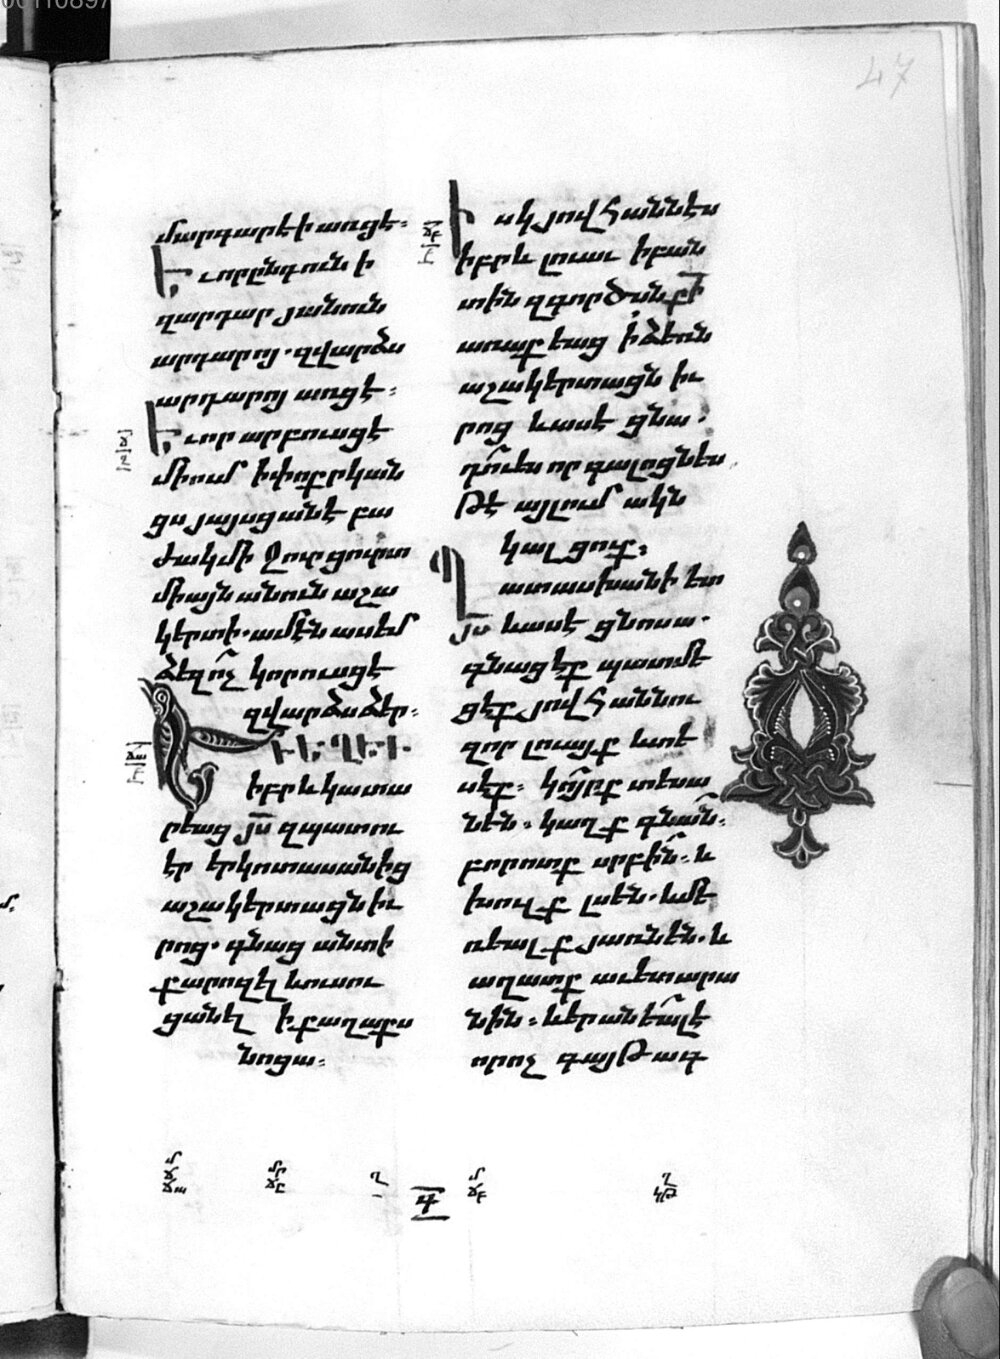 47
մարգարէի առցէ։
Եւ որ ընդունի
զարդար յանուն
արդարոյ. զվարձս
արդարոյ առցէ։
Եւ որ արբուսցէ
միում ի փոքրկան
ցս յայսցանէ բա
ժակ մի ջուր ցուրտ
միայն անուն աշա
կերտի. ամէն ասեմ
ձեզ ո՛չ կորուսցէ
զվարձս ձեր։
ԵՒ ԵՂԵՒ.
իբրև կատա
րեաց յս զպատու
էր երկոտասանից
աշակերտացն իւ
րոց. գնաց անտի
քարոզել և ուսու
ցանել ի քաղաքս
նոցա։
Իսկ յովհաննէս
իբրև լուաւ ի բան
տին զգործսն քի
առաքեաց ի ձեռն
աշակերտացն իւ
րոց և ասէ ցնա.
դո՛ւ ես որ գալոցն ես
թէ այլում ակն
կալցուք։
Պատասխանի ետ
յս և ասէ ցնոսա.
գնացէք պատմե
ցէք յովհաննու
զոր լուայք և տե
սէք։ կոյրք տեսա
նեն։ կաղք գնան։
բորոտք սրբին։ և
խուլք լսեն. և մե
ռեալք յառնեն. և
աղքատք աւետարա
նին։ և երանեալ է
որ ոչ գայթագ